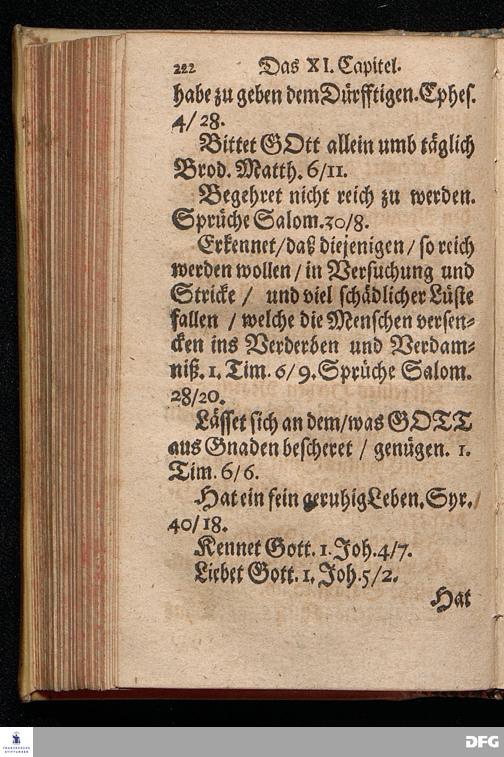 222 Das XI. Capitel.
habe zu geben dem Dürfftigen. Ephes.
4/28.
Bittet GOtt allein umb täglich
Brod. Matth. 6/11.
Begehret nicht reich zu werden.
Sprüche Salom. 30/8.
Erkennet/daß diejenigen/so reich
werden wollen/in Versuchung und
Stricke / und viel schädlicher Lüste
fallen / welche die Menschen versen-
cken ins Verderben und Verdam-
niß. 1. Tim. 6/9. Sprüche Salom.
28/20.
Lässet sich an dem/was GOTT
aus Gnaden bescheret / genügen. 1.
Tim. 6/6.
Hat ein fein geruhig Leben. Syr.
40/18.
Kennet Gott. 1. Joh. 4/7.
Liebet Gott. 1. Joh. 5/2.
Hat
FRANCKESCHE
STIFTUNGEN
DFG